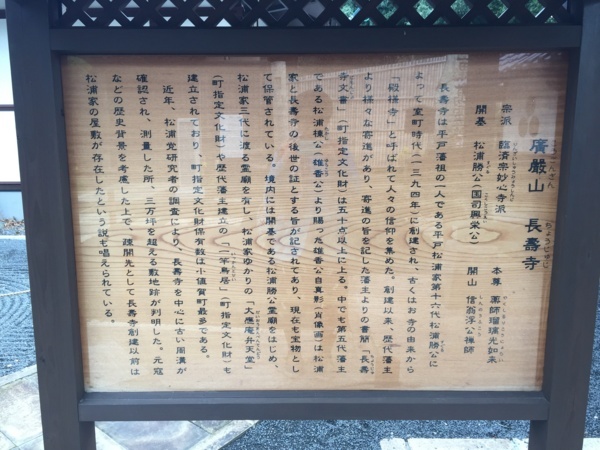 廣嚴山　長壽寺
宗派　臨済宗妙心寺派
本尊　薬師瑠璃光如来
開基　松浦勝公(国司興栄公)
開山　信翁浮公禅師
長壽寺は平戸藩祖の一人である平戸松浦家第十六代松浦勝公に
よって室町時代(一三九四年)に創建され、古くはお寺の由来から
「殿様寺」と呼ばれて人々の信仰を集めた。創建以来、歴代藩主
より様々な寄進があり、寄進の旨を記た藩主よりの書簡「長壽
寺文書」(町指定文化財)は五十点以上に上る。中でも第五代藩主
である松浦棟公(雄香公)より賜った雄香公自真影(肖像画)は松浦
家と長壽寺の後世の証とする旨が記されてあり、現在も宝物とし
て保管されている。境内には開基である松浦勝公霊廟をはじめ、
松浦家三代に渡る霊廟を有し、松浦家ゆかりの「大應庵弁天堂」
(町指定文化財)や歴代藩主建立の「一竿鳥居」(町指定文化財)も
建立されており、町指定文化財保有数は小値賀町最多である。
近年、松浦党研究者の調査により、長壽寺を中心に古い周溝が
確認され、測量した所、三万坪を超える敷地跡が判明した。元寇
などの歴史背景を考慮した上で、疎開先として長壽寺創建以前は
松浦家の屋敷が存在したという説も唱えられている。